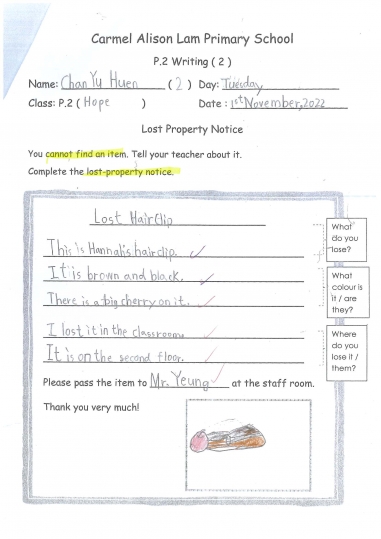 Carmel Alison Lam Primary School
P.2 Writing ( 2 )
Name: Chan Yu Huen ( 2 ) Day: Tuesday
Class: P.2 ( Hope ) Date : 1st November, 2022
Lost Property Notice
You cannot find an item. Tell your teacher about it.
Complete the lost-property notice.
Lost Hairclip
This is Hannah's hairclip.
It is brown and black.
There is a big cherry on it.
I lost it in the classroom.
It is on the second floor.
Please pass the item to Mr. Yeung at the staff room.
Thank you very much!
What
do you
lose?
What
colour is
it / are
they?
Where
do you
lose it /
them?